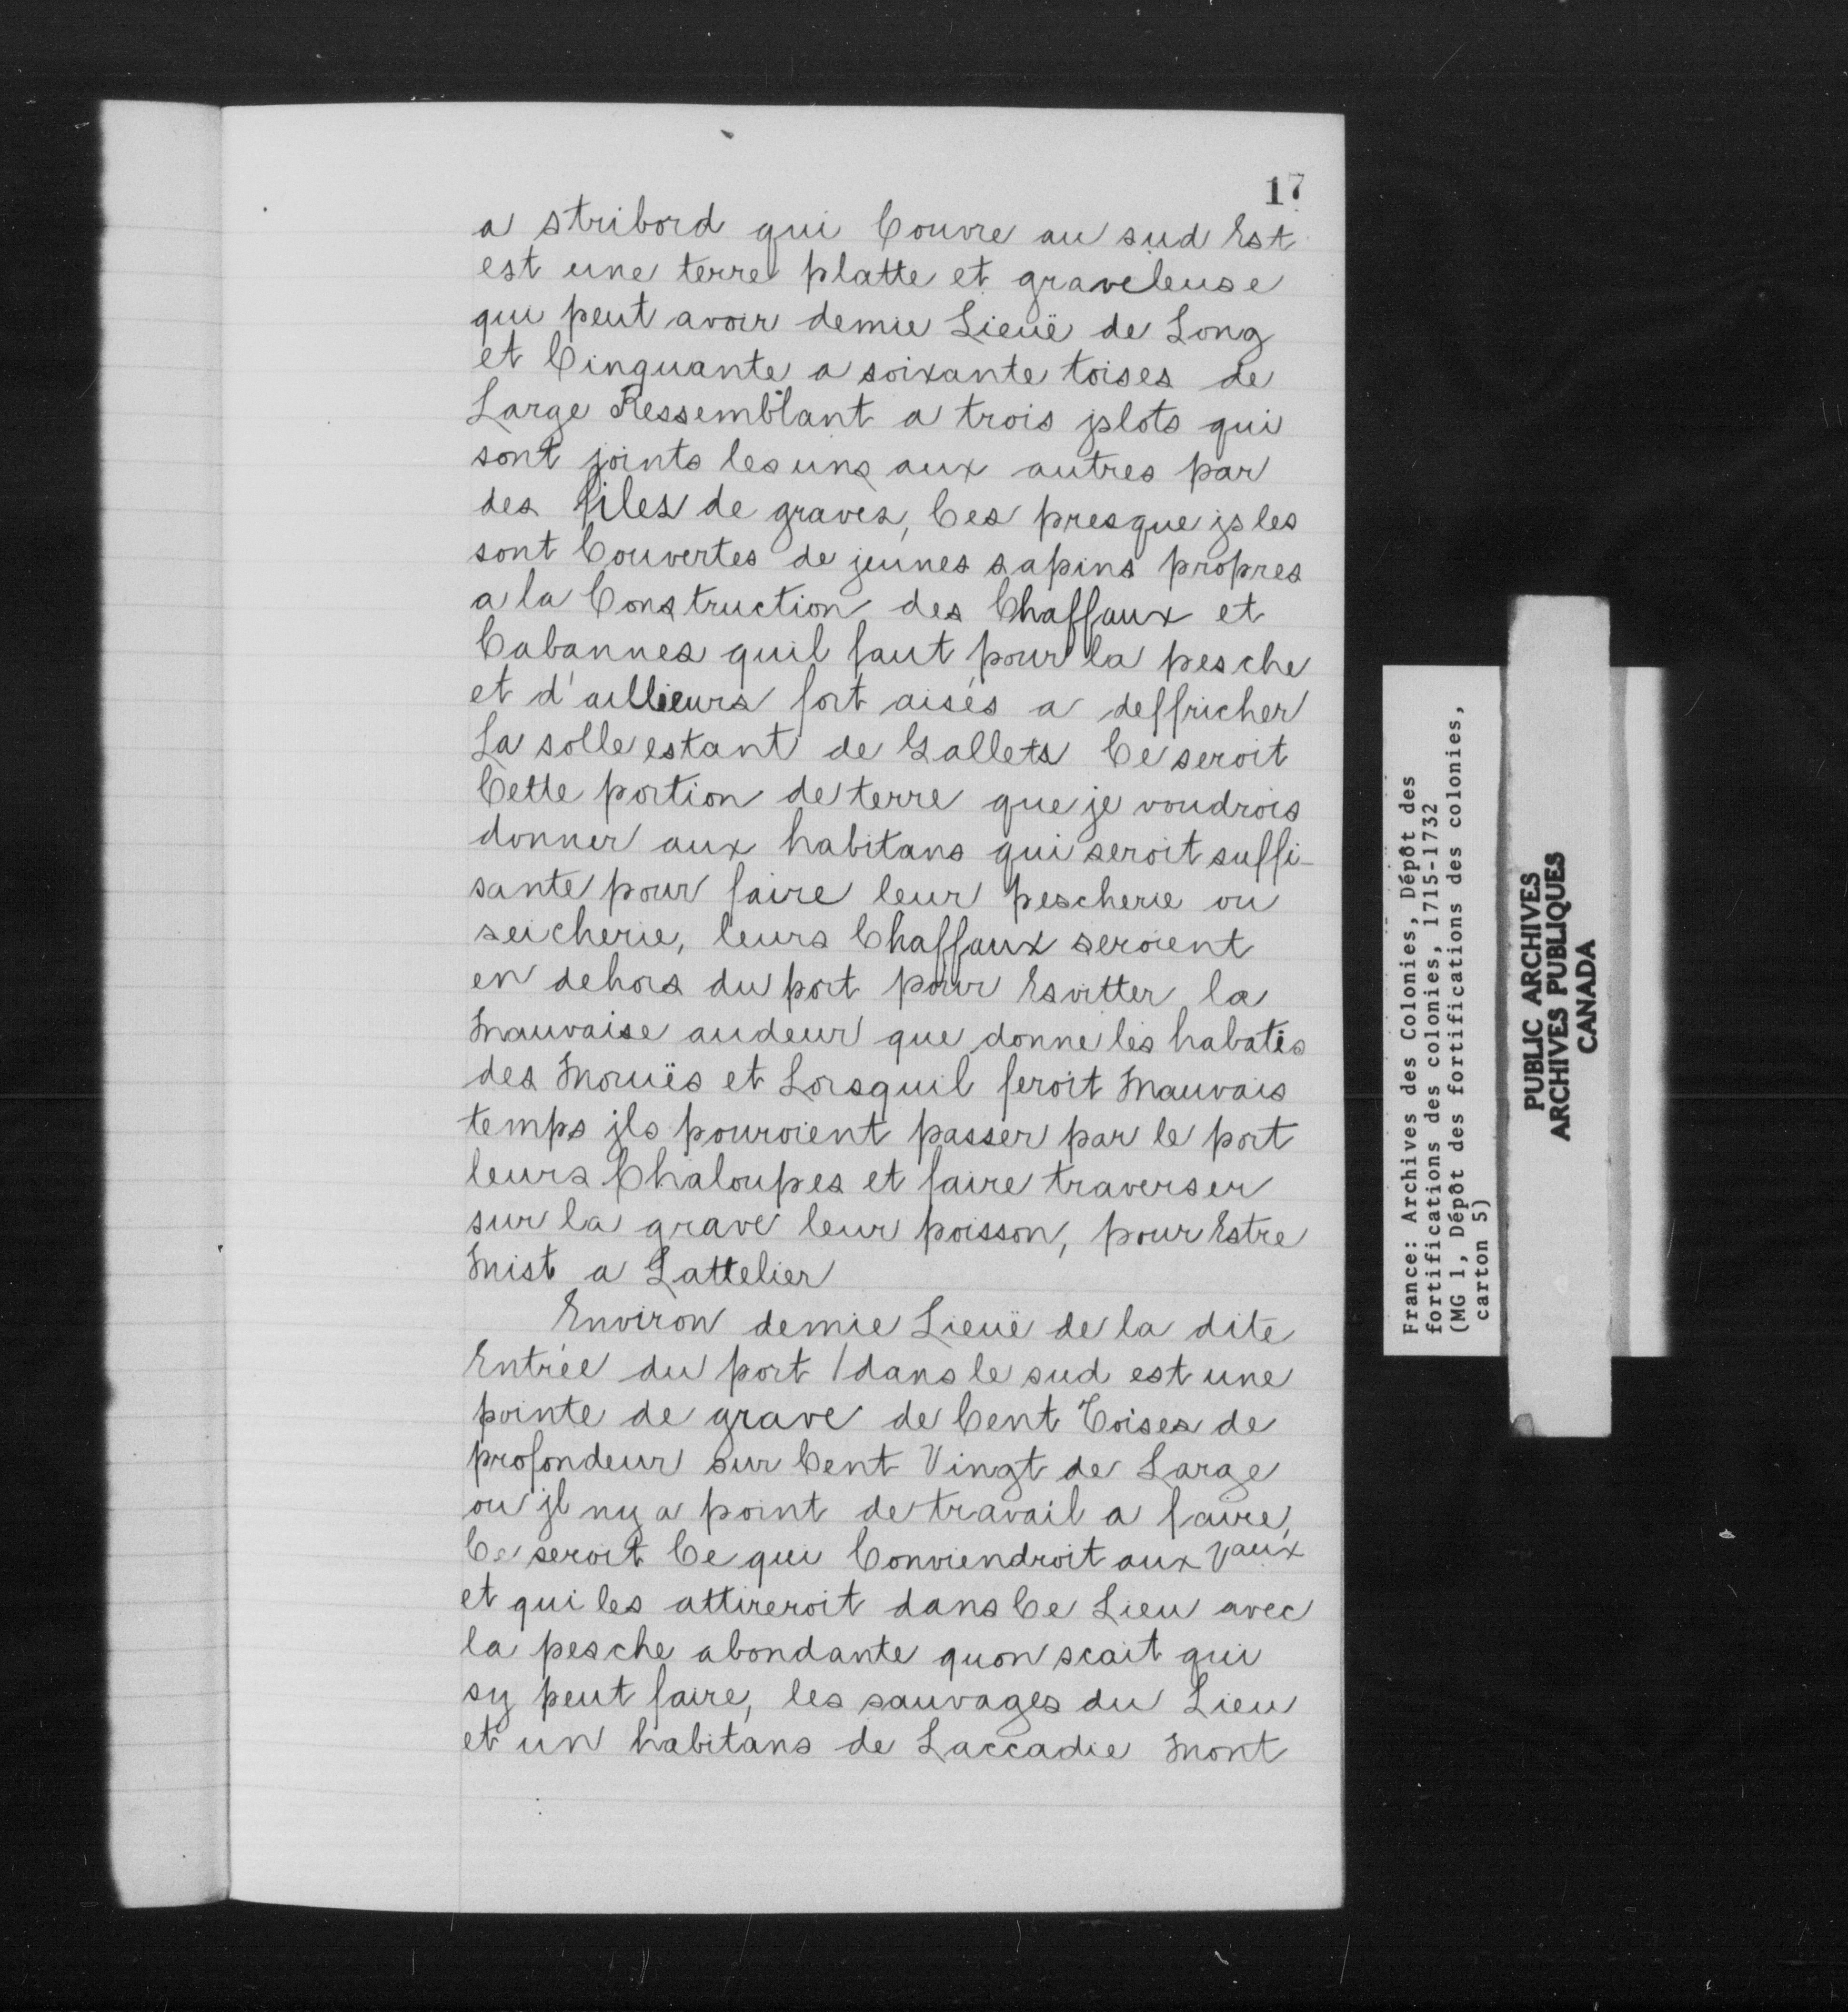 17
a stribord qui Couvre au sud Est
est une terre platte et graveleuse
qui peut avoir demie Lieuë de Long
et Cinquante a soixante toises de
Large Ressemblant a trois jslots qui
sont joints les uns aux autres par
des files de graves, Ces presque jsles
sont Couvertes de jeunes sapins propres
a la Construction des Chaffaux et
Cabannes quil faut pour la pesche
et d'aillieurs fort aisés a deffricher
La solle estant de Gallets Ce seroit
Cette portion de terre que je voudrois
donner aux habitans qui seroit suffi-
sante pour faire leur pescherie ou
seicherie, leurs Chaffaux seroient
en dehors du port pour Esvitter la
Mauvaise audeur que donne les habatis
des Moruës et Lorsquil feroit Mauvais
temps jls pouroient passer par le port
leurs Chaloupes et faire traverser
sur la grave leur poisson, pour Estre
Mist a Lattelier
Environ demie Lieuë de la dite
Entrée du port / dans le sud est une
pointe de grave de Cent Toises de
profondeur sur Cent Vingt de Large
ou jl ny a point de travail a faire,
Ce seroit Ce qui Conviendroit aux Vaux
et qui les attireroit dans Ce Lieu avec
la pesche abondante quon scait qui
sy peut faire, les sauvages du Lieu
et un habitans de Laccadie Mont
France: Archives des Colonies, Dépôt des
fortifications des colonies, 1715-1732
(MG 1, Dépôt des fortifications des colonies,
carton 5)
PUBLIC ARCHIVES
ARCHIVES PUBLIQUES
CANADA